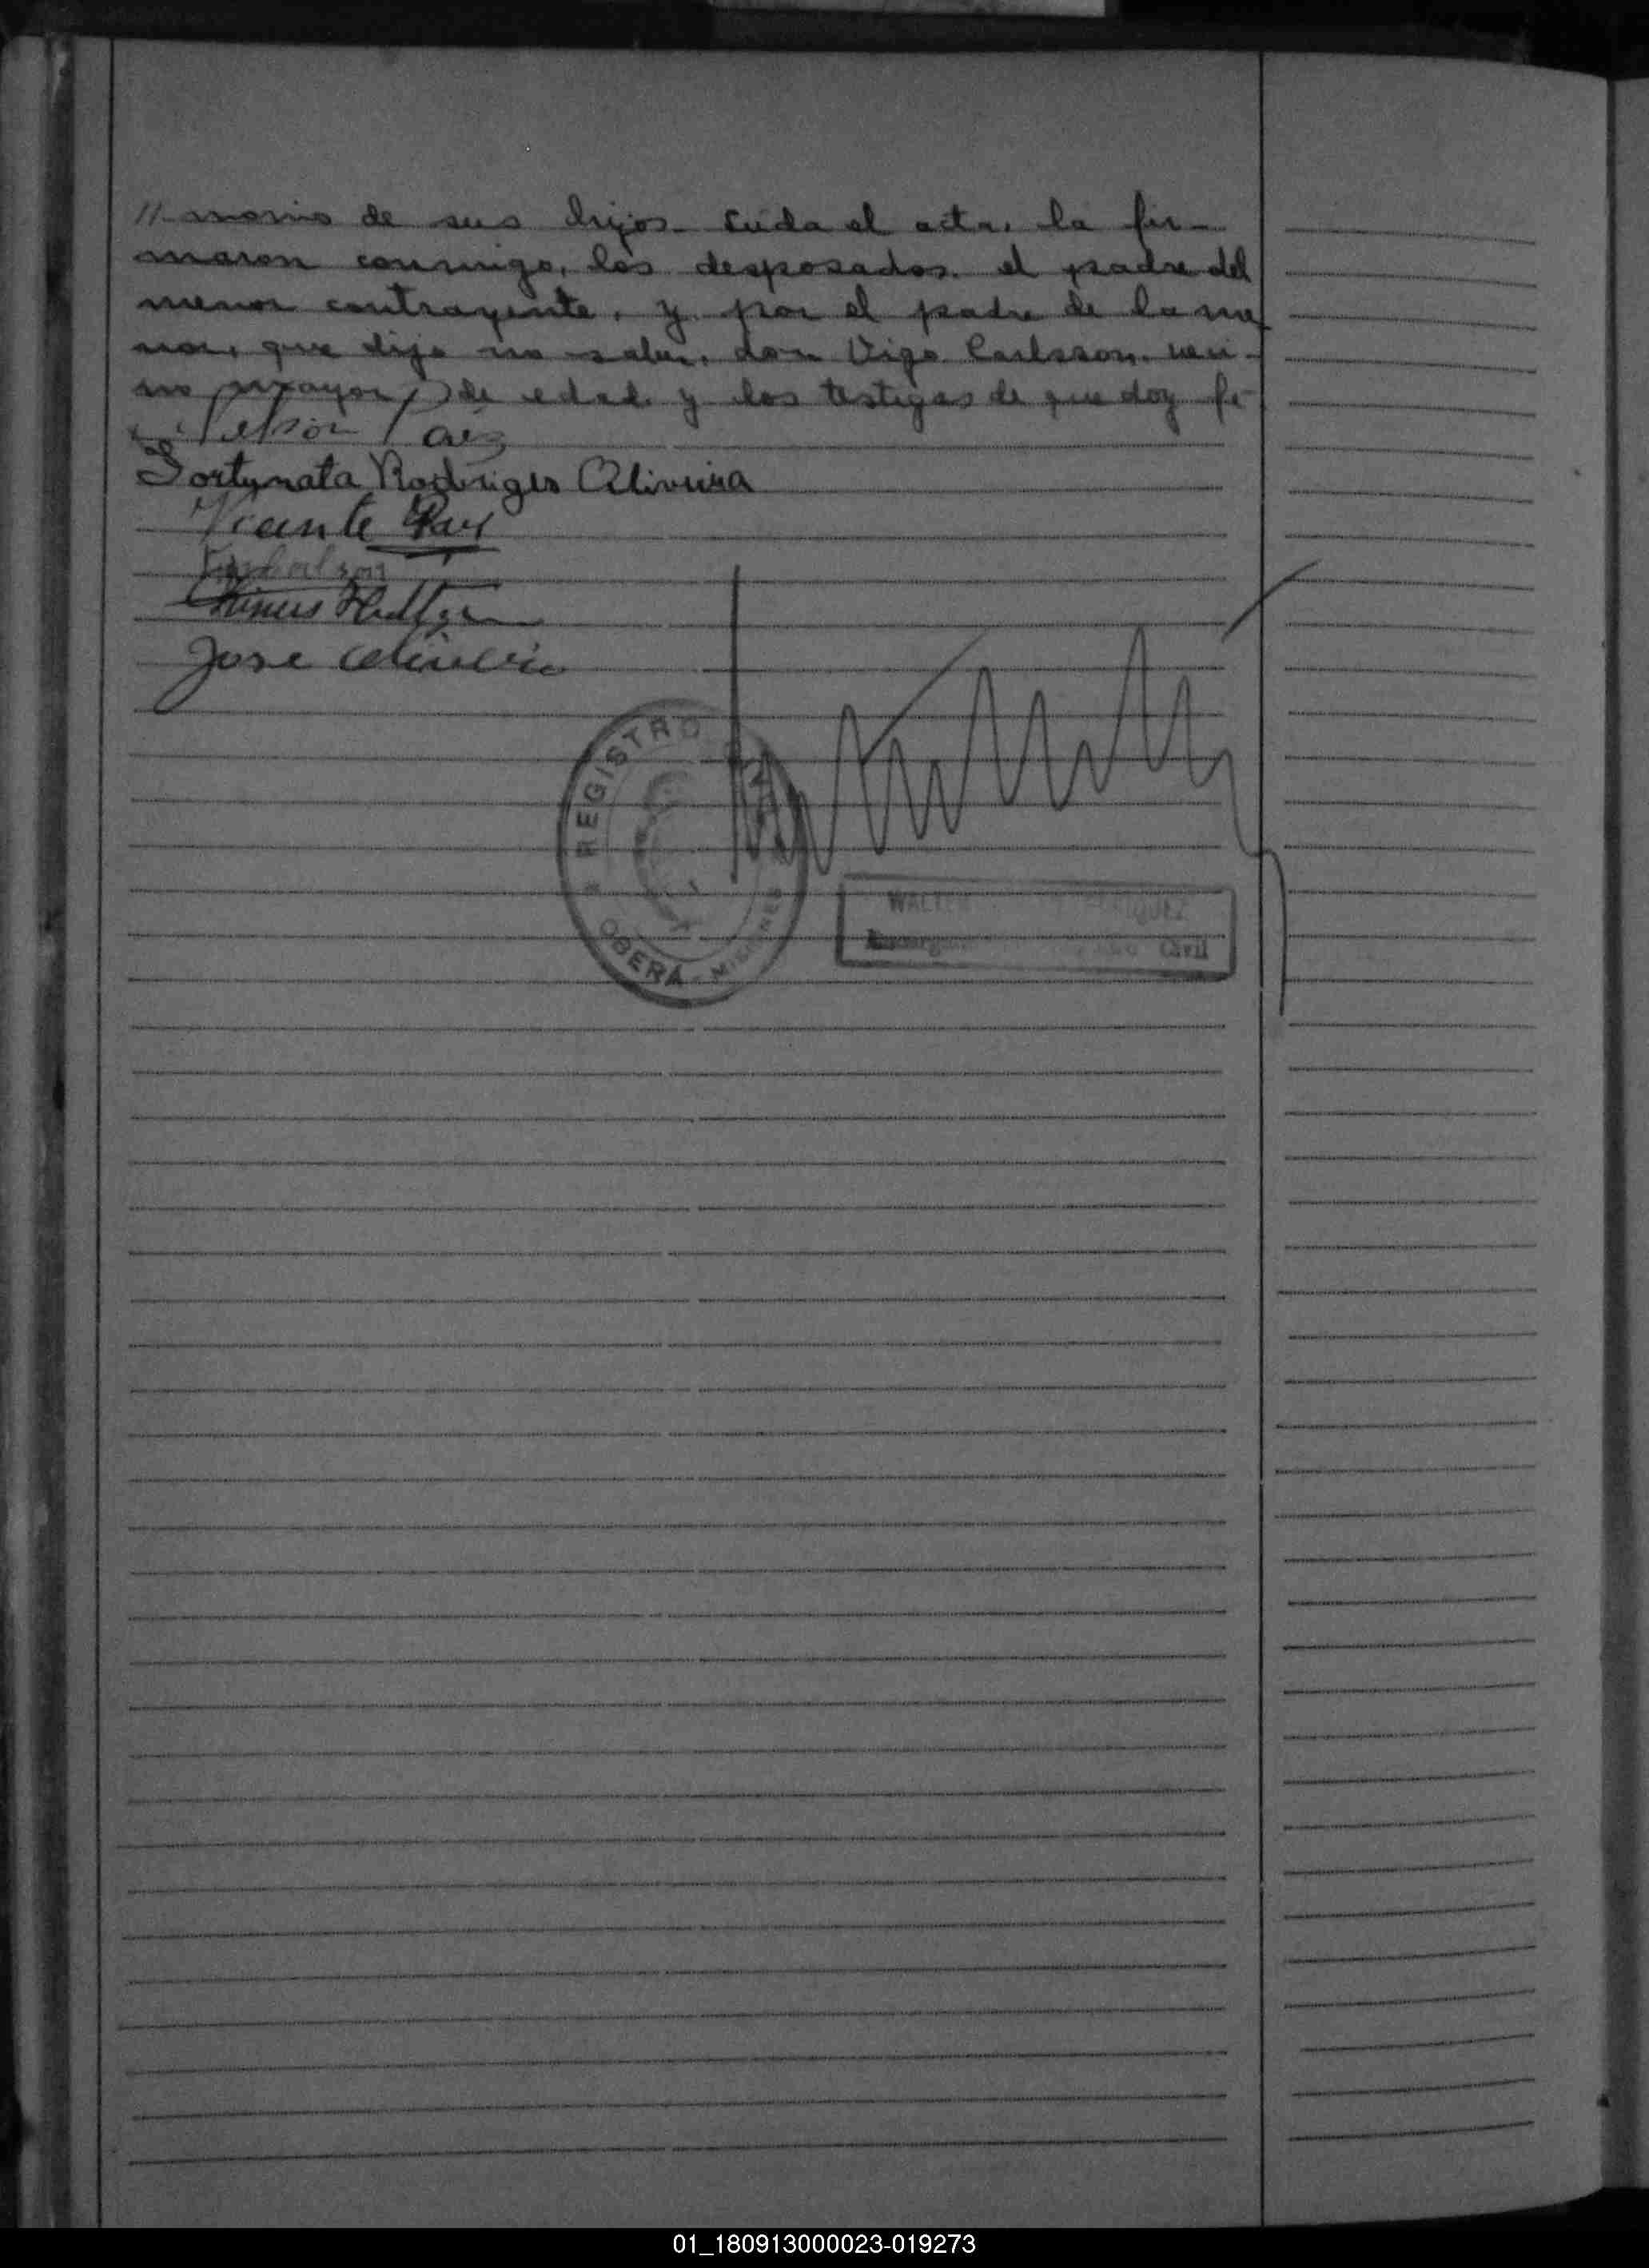 //-monio de sus hijos. Leida el acta, la fir-
maron conmigo, los desposados, el padre del
menor contrayente, y por el padre de la me
nor, que dijo no saber, don Vigo Carlsson, veci-
no mayor de edad y los testigos de que doy fe
Fortunata Rodriges Oliveira
Vicente
Jose Oliveira
REGISTRO CIVIL
OBERÁ - MISIONES
WALTER
Civil
01_180913000023-019273